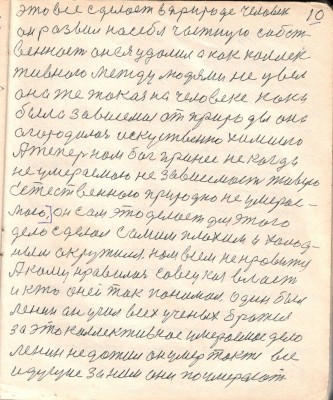 это все сделает в природе человек
10
он развил на себя частную собст-
венност он ея удолил а как коллек-
тивного между людями не увел
она же такая на человеке как
была зависима от природы она
огородилас искуственно химиею
А теперь нам бог принес некогда
не умераемаю не зависимост живую
Естественного природно не умерае-
мою, он сам это делает для этого
дело сделал самим плохим и холод-
ным окружил нам всем не провиту
А кому нравилас совецкая власт
и кто о ней так понимал один был
ленин он учил всех ученых братся
за это коллективное умераемое дело
ленин не дожил он умер так и все
идущие за ним они поумерают